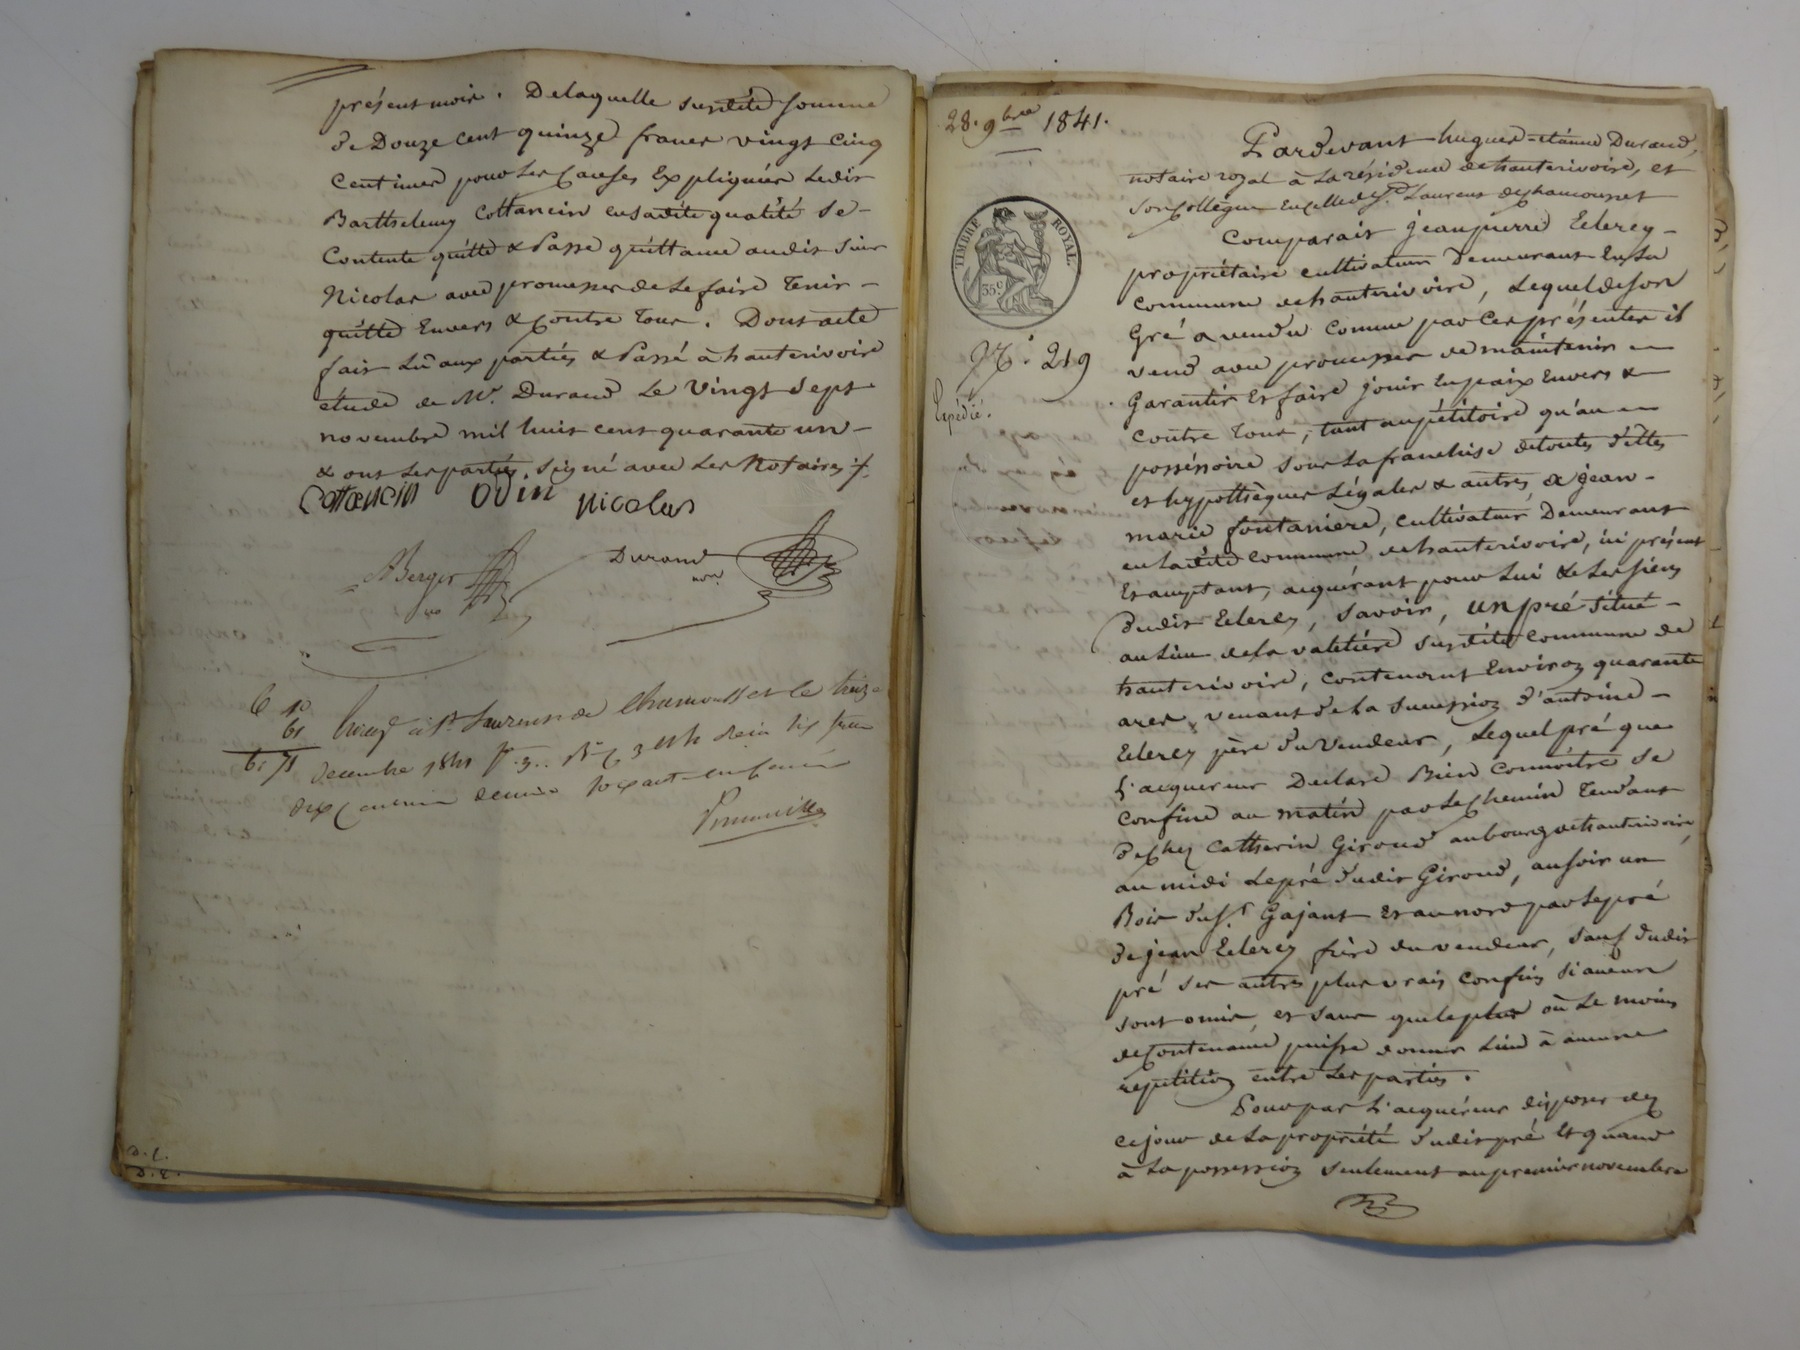 présent mois. Delaquelle susdite somme
de Douze cent quinze francs vingt cinq
Centimes pour les causes Expliquées ledit
Barthelemy Cottancin en sadite qualité se -
Contente quitte & Passe quittance audit sieur
Nicolas avec promesses de le faire Tenir -
quitte Envers & contre Tous. Dont acte
fait Lû aux parties & Passé à hauterivoire
étude de Me. Durand Le Vingt sept
novembre mil huit cent quarante un -
& ont les parties, signé avec les Notaires ./.
Cottancin Odin Nicolas
ABerger Durand
not
6 10
61
61 71
à St Laurent de Chamousset le treize
Decembre 1841 fo 3 six francs
dix centimes decime
D. L.
D. E.
28. 9bre 1841.
Pardevant hugues-etienne Durand,
notaire royal à la résidence de hauterivoire, et
son collègue en celle de St. Laurent de chamousset
Comparait jean pierre Eclercy -
propriétaire cultivateur Demeurant En la
commune de hauterivoire, Lequel de son
TIMBRE ROYAL.
35 c
Gré a vendu comme par Ces présentes il
No. 219
vend avec promesses de maintenir
Expédié.
Garantir Et faire jouir En paix Envers &
contre Tous, tant au pétitoire qu'au
possessoire sous la franchise de toutes dettes
et hypothèques Légales & autres, à jean -
marie fontaniere, cultivateur Demeurant
en ladite commune de hauterivoire, ici présent
Et acceptant, acquérant pour Lui & les siens
dudit Eclercy, Savoir, un pré situé -
au Lieu de la valetiére susdite commune de
hauterivoire, contenant Environ quarante
ares, venant de la succession d'antoine -
Eclercy père du vendeur, Lequel pré que
L'acquereur Declare Bien Connoitre se
confine au matin par le chemin Tendant
de chez Catherin Giroud au bourg de hauterivoire,
au midi Le pré dudit Giroud, au soir un
Bois du Sr. Gajant Et au nord par le pré
de jean Eclercy frère du vendeur, sauf dudit
pré ses autres plus vrais confins si aucuns
sont omis, et sans que le plus où Le moins
de contenance puisse donner Lieu à aucune
repetition entre Les parties.
Pour par L'acquéreur disposer dez
ce jour de la propriété dudit pré Et quand
à La possession seulement au premier novembre